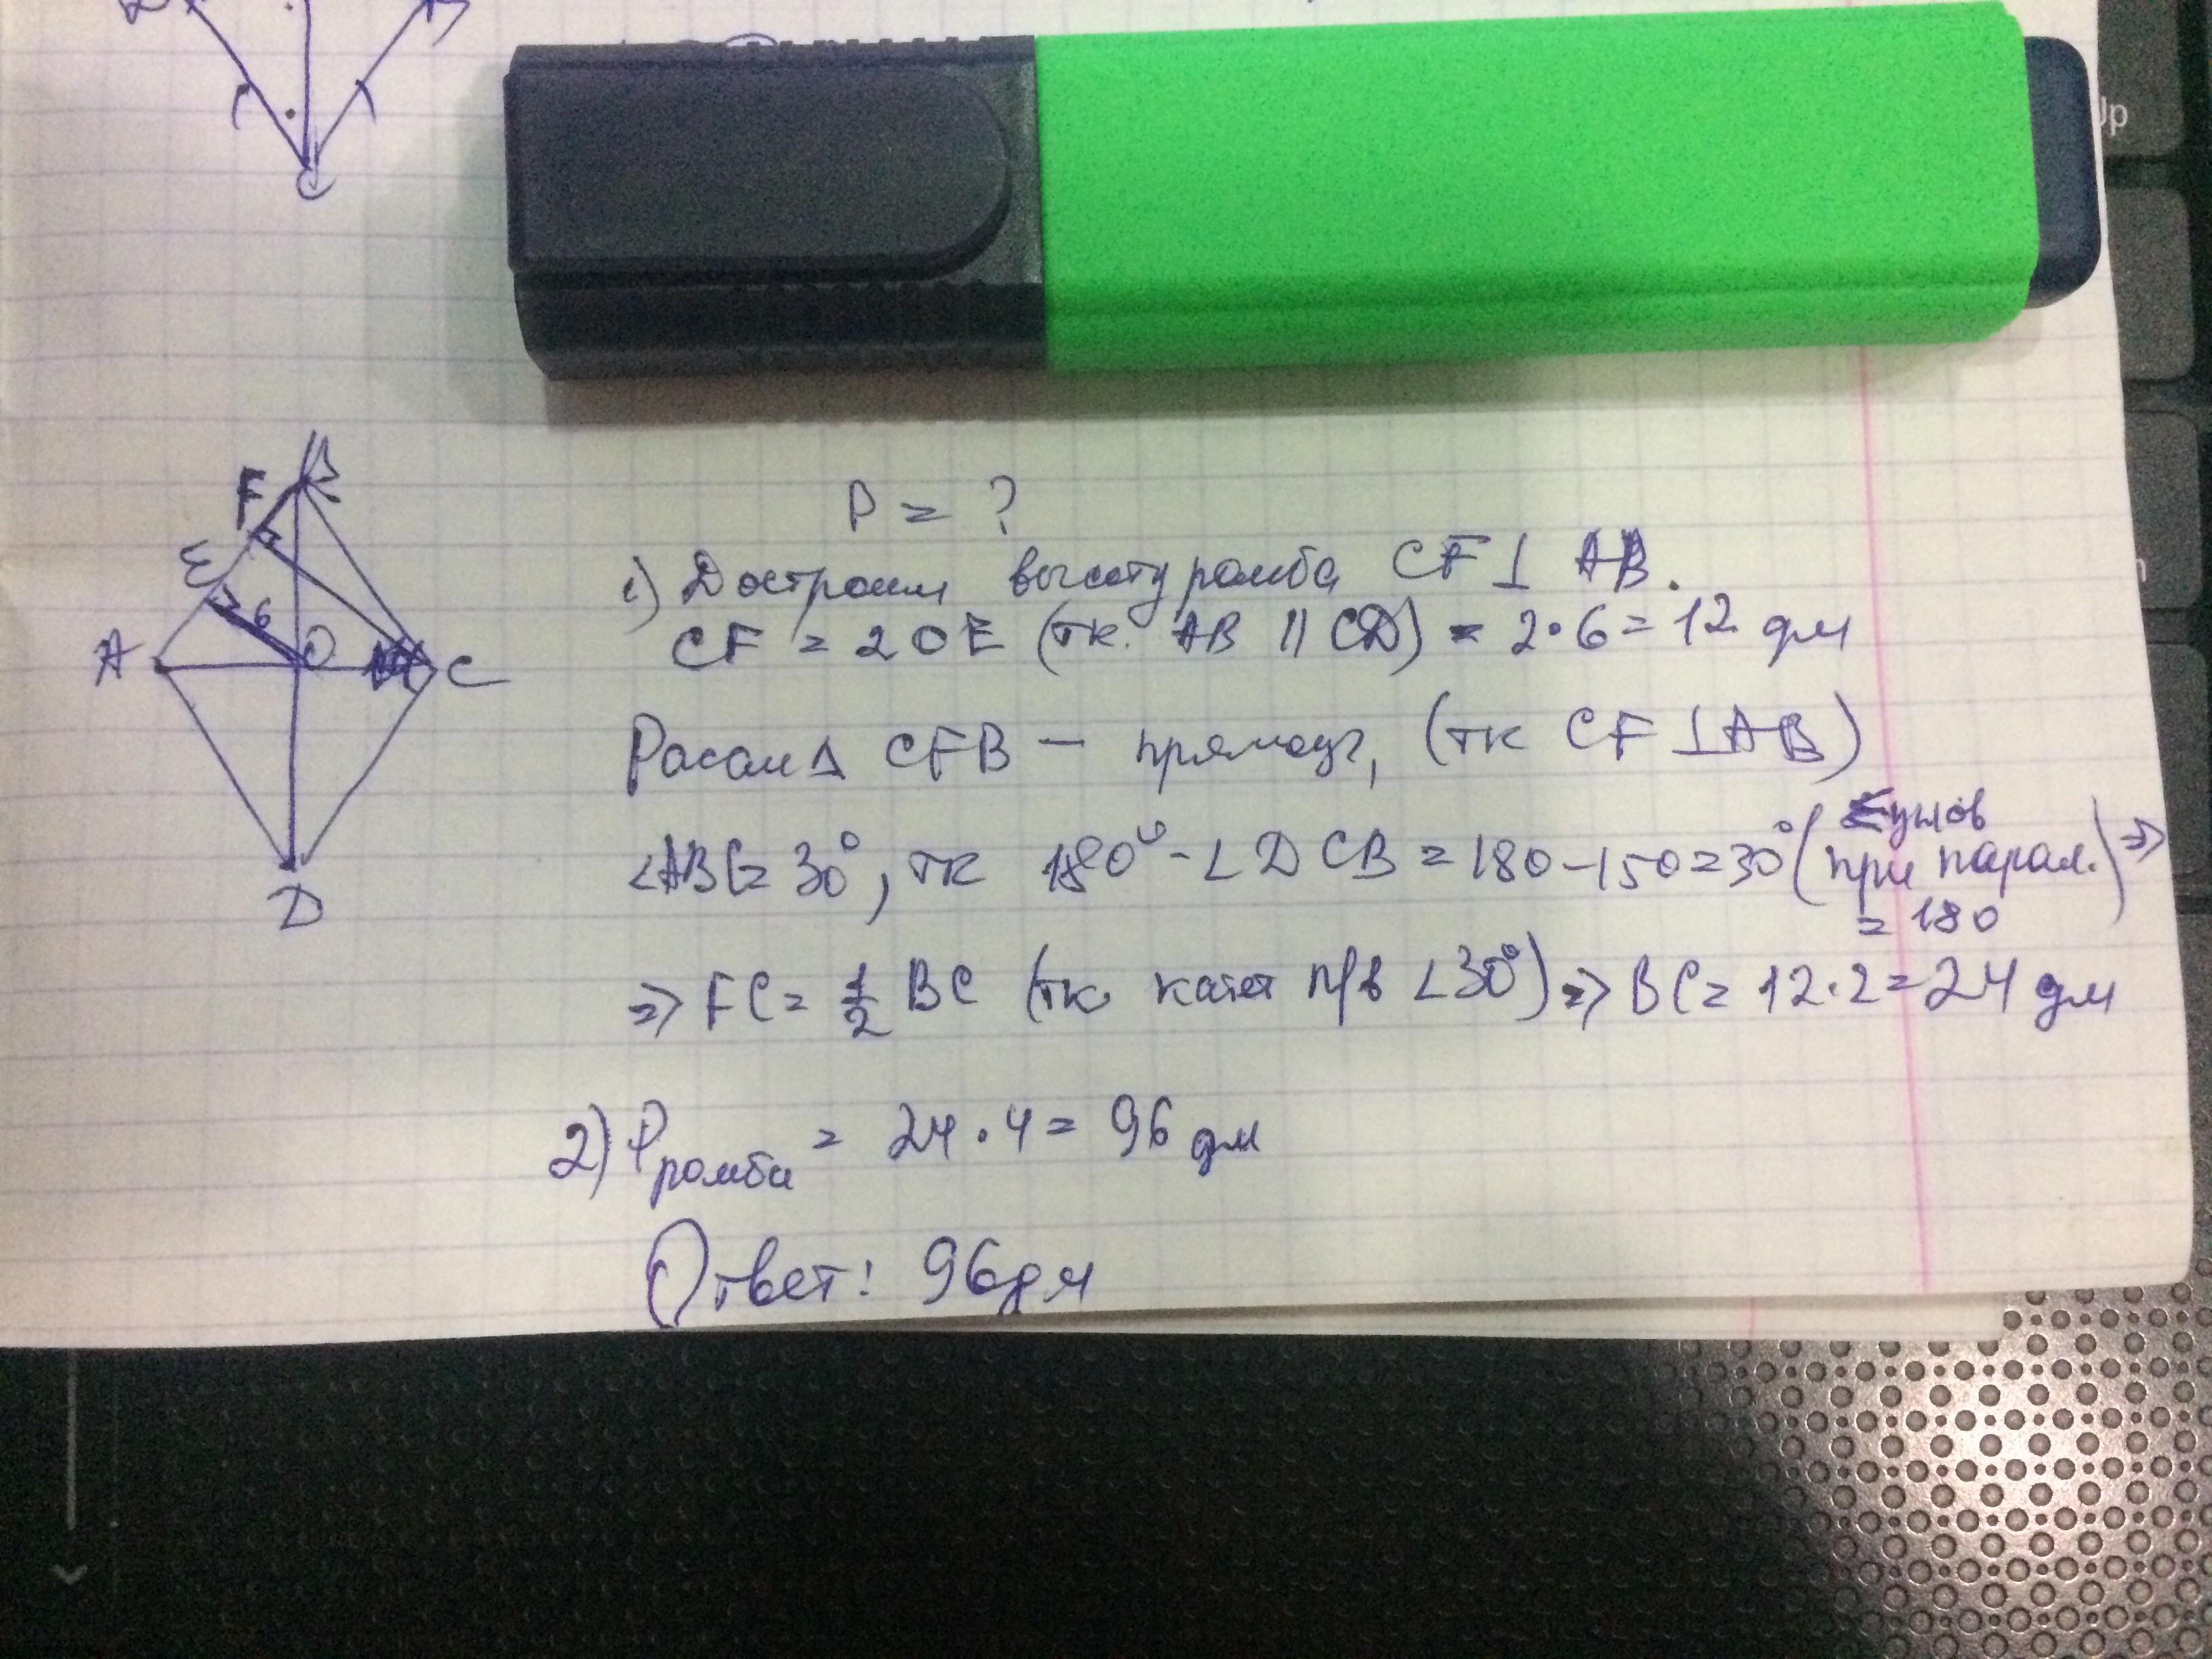 C
P = ?
1) Достроим высоту ромба CF ⊥ AB.
CF = 2 OE (тк. AB || CD) = 2·6 = 12 дм
Рассм Δ CFB — прямоуг, (тк CF ⊥ AB)
∠ABC = 30°, тк 180° - ∠DCB = 180 - 150 = 30° ( углов при парал. = 180 ) =>
=> FC = 1/2 BC (тк катет п/в ∠30°) => BC = 12·2 = 24 дм
2) P ромба = 24·4 = 96 дм
Ответ: 96 дм
B
F
E
6
A
O
C
D
Up